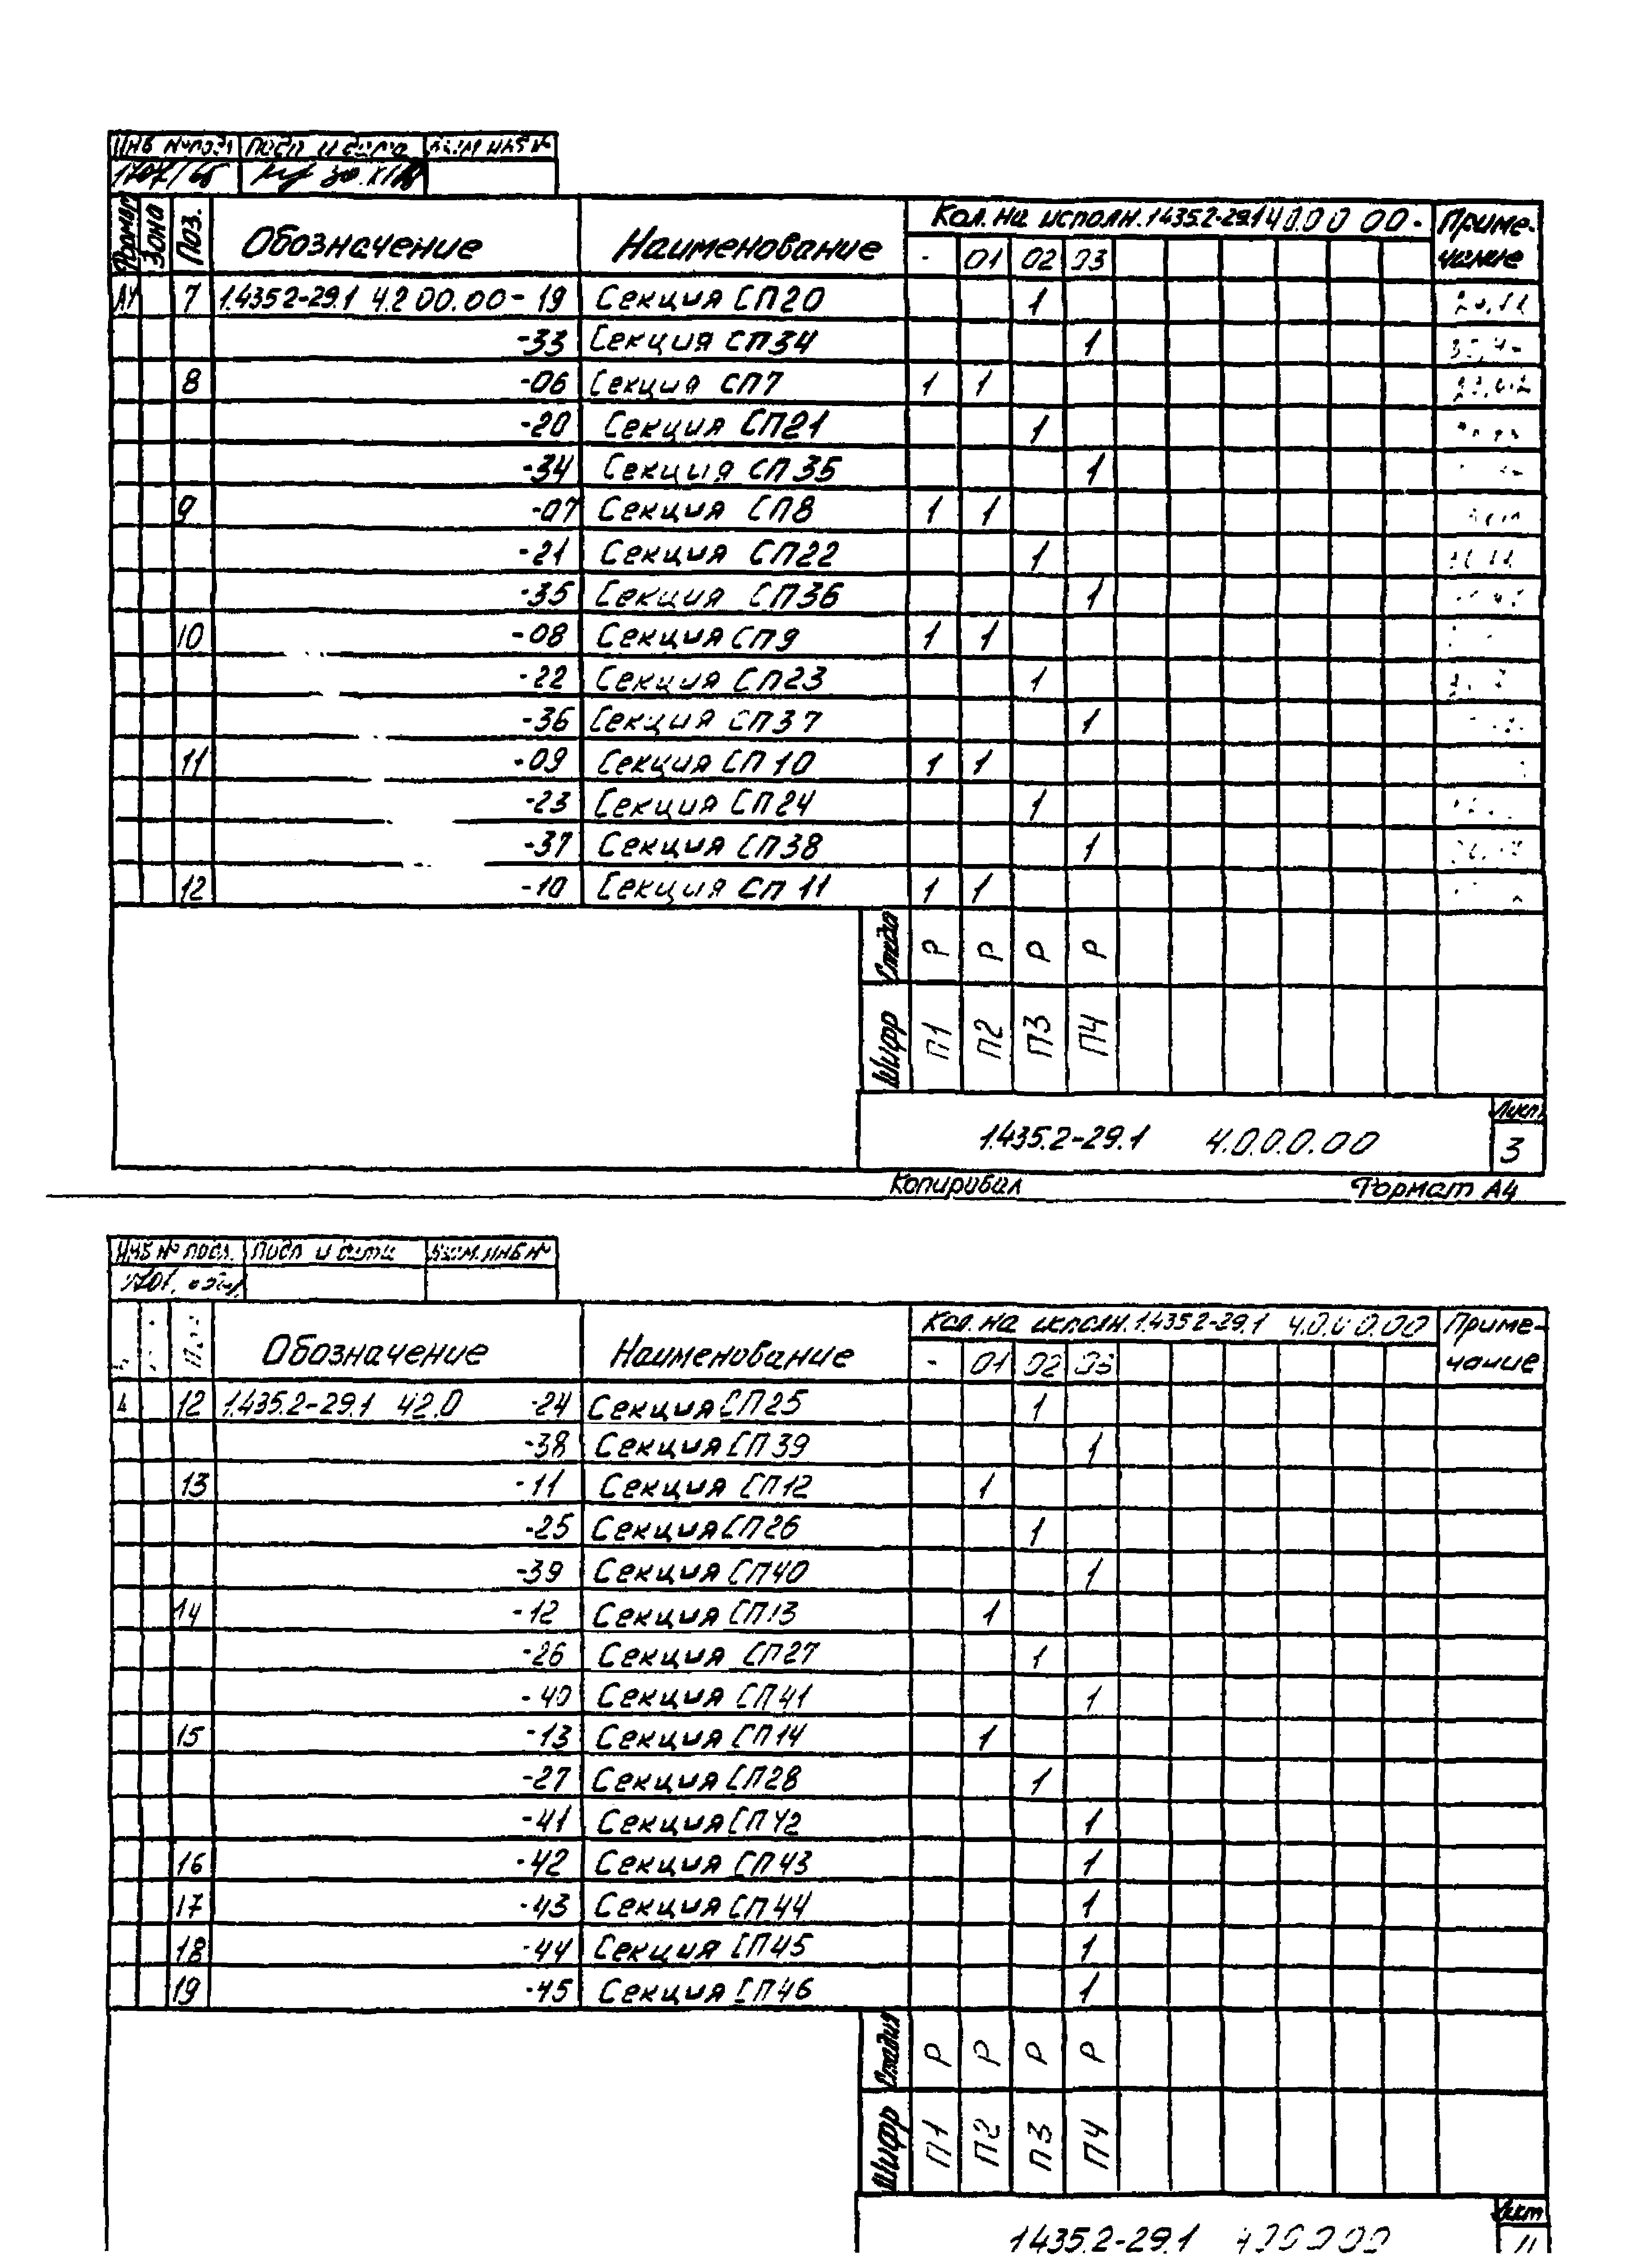 Инв № подл Подп и дата Взам инв №
1707/65
Формат Зона Поз. Обозначение Наименование Кол. на исполн. 1.435.2-29.1 4.0.0 0 00- Приме-
- 01 02 03 чание
А4 7 1.435.2-29.1 4.2 00.00-19 Секция СП20 1
-33 Секция СП34 1
8 -06 Секция СП7 1 1
-20 Секция СП21 1
-34 Секция СП35 1
9 -07 Секция СП8 1 1
-21 Секция СП22 1
-35 Секция СП36 1
10 -08 Секция СП9 1 1
-22 Секция СП23 1
-36 Секция СП37 1
11 -09 Секция СП10 1 1
-23 Секция СП24 1
-37 Секция СП38 1
12 -10 Секция СП11 1 1
Стадия Р Р Р Р
Шифр П1 П2 П3 П4
Лист
1.435.2-29.1 4.0.0.0.00 3
Копировал Формат А4
Инв № подл. Подп и дата Взам. инв №
Обозначение Наименование Кол. на исполн. 1.435.2-29.1 4.0.0 0.00 Приме-
- 01 02 03 чание
12 1.435.2-29.1 42.0 -24 Секция СП25 1
-38 Секция СП39 1
13 -11 Секция СП12 1
-25 Секция СП26 1
-39 Секция СП40 1
14 -12 Секция СП13 1
-26 Секция СП27 1
-40 Секция СП41 1
15 -13 Секция СП14 1
-27 Секция СП28 1
-41 Секция СП42 1
16 -42 Секция СП43 1
17 -43 Секция СП44 1
18 -44 Секция СП45 1
19 -45 Секция СП46 1
Стадия Р Р Р Р
Шифр П1 П2 П3 П4
Лист
1.435.2-29.1